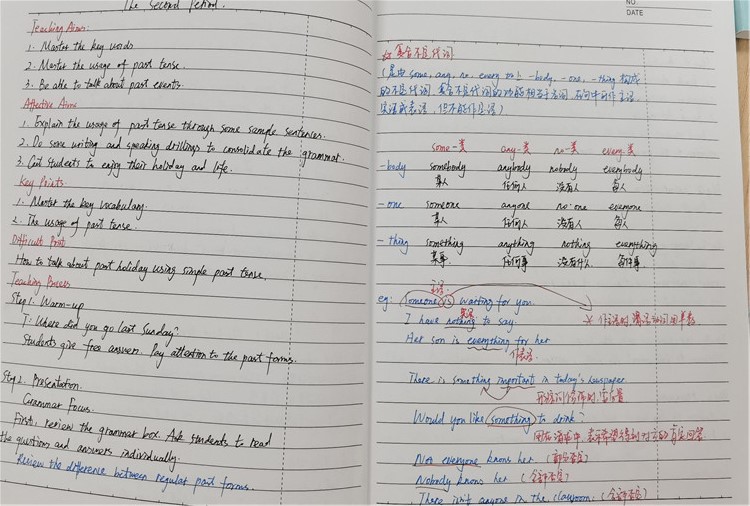 The Second Period.
Teaching Aims:
1. Master the key words
2. Master the usage of past tense.
3. Be able to talk about past events.
Affective Aims
1. Explain the usage of past tense through some sample sentences.
2. Do some writing and speaking drillings to consolidate the grammar.
3. Get students to enjoy their holiday and life.
Key Points
1. Master the key vocabulary.
2. The usage of past tense.
Difficult Point
How to talk about past holiday using simple past tense.
Teaching Process
Step 1. Warm-up
T: Where did you go last Sunday?
Students give free answers. Pay attention to the past forms.
Step 2. Presentation.
Grammar Focus.
First, review the grammar box. Ask students to read
the questions and answers individually.
Review the difference between regular past forms.
NO
DATE
复合不定代词
(是由 some, any, no, every 加上 -body, -one, -thing 构成
的不定代词. 复合不定代词的功能相当于名词, 在句中可作主语.
宾语或表语, 但不能作定语)
some-类 any-类 no-类 every-类
-body somebody anybody nobody everybody
某人 任何人 没有人 每人
-one someone anyone no one everyone
某人 任何人 没有人 每人
-thing something anything nothing everything
某事 任何事 没有什么 每件事
主语
eg: Someone is waiting for you.
作主语时谓语动词用单数
宾语
I have nothing to say.
Her son is everything for her
作表语
There is something important in today's newspaper
形容词修饰时,
Would you like something to drink?
用在 中, 表示希望得到对方的肯定回答
Not everyone knows her. (部分否定)
Nobody knows her (全部否定)
There isn't anyone in the classroom. (全部否定)